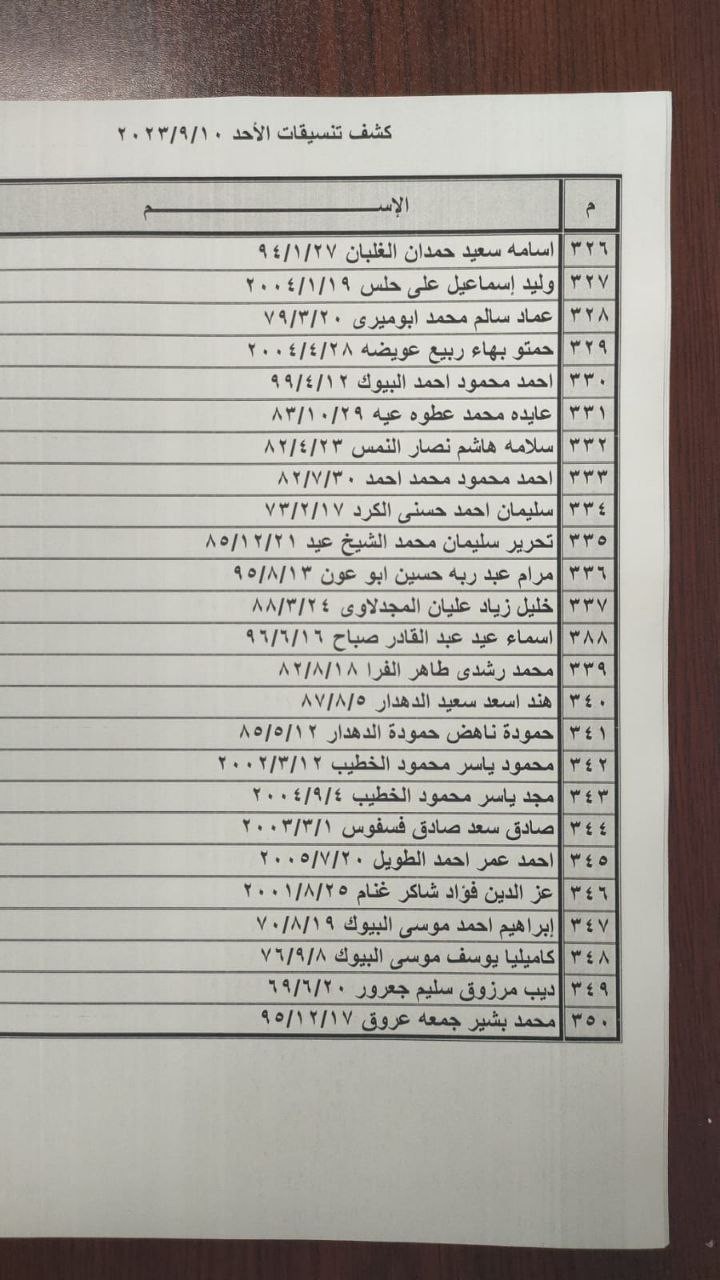 كشف تنسيقات الأحد ٢٠٢٣/٩/١٠
م الإســـــــــم
٣٢٦ اسامه سعيد حمدان الغلبان ٩٤/١/٢٧
٣٢٧ وليد إسماعيل على حلس ٢٠٠٤/١/١٩
٣٢٨ عماد سالم محمد ابوميرى ٧٩/٣/٢٠
٣٢٩ حمتو بهاء ربيع عويضه ٢٠٠٤/٤/٢٨
٣٣٠ احمد محمود احمد البيوك ٩٩/٤/١٢
٣٣١ عايده محمد عطوه عيه ٨٣/١٠/٢٩
٣٣٢ سلامه هاشم نصار النمس ٨٢/٤/٢٣
٣٣٣ احمد محمود محمد احمد ٨٢/٧/٣٠
٣٣٤ سليمان احمد حسنى الكرد ٧٣/٢/١٧
٣٣٥ تحرير سليمان محمد الشيخ عيد ٨٥/١٢/٢١
٣٣٦ مرام عبد ربه حسين ابو عون ٩٥/٨/١٣
٣٣٧ خليل زياد عليان المجدلاوى ٨٨/٣/٢٤
٣٨٨ اسماء عيد عبد القادر صباح ٩٦/٦/١٦
٣٣٩ محمد رشدى طاهر الفرا ٨٢/٨/١٨
٣٤٠ هند اسعد سعيد الدهدار ٨٧/٨/٥
٣٤١ حمودة ناهض حمودة الدهدار ٨٥/٥/١٢
٣٤٢ محمود ياسر محمود الخطيب ٢٠٠٢/٣/١٢
٣٤٣ مجد ياسر محمود الخطيب ٢٠٠٤/٩/٤
٣٤٤ صادق سعد صادق فسفوس ٢٠٠٣/٣/١
٣٤٥ احمد عمر احمد الطويل ٢٠٠٥/٧/٢٠
٣٤٦ عز الدين فؤاد شاكر غنام ٢٠٠١/٨/٢٥
٣٤٧ إبراهيم احمد موسى البيوك ٧٠/٨/١٩
٣٤٨ كاميليا يوسف موسى البيوك ٧٦/٩/٨
٣٤٩ ديب مرزوق سليم جعرور ٦٩/٦/٢٠
٣٥٠ محمد بشير جمعه عروق ٩٥/١٢/١٧